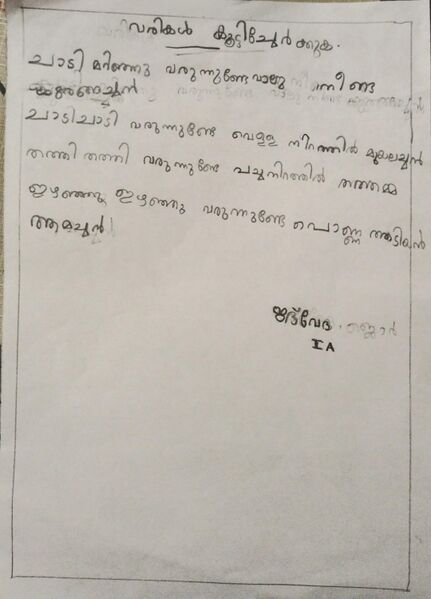 വരികൾ കൂട്ടിച്ചേർക്കുക.
ചാടി മറിഞ്ഞു വരുന്നുണ്ടേ വാലു നീണ്ട
കുരങ്ങച്ചൻ
ചാടിചാടി വരുന്നുണ്ടേ വെള്ള നിറത്തിൽ മുയലച്ചൻ
തത്തി തത്തി വരുന്നുണ്ടേ പച്ചനിറത്തിൽ തത്തമ്മ
ഇഴഞ്ഞു ഇഴഞ്ഞു വരുന്നുണ്ടേ പൊണ്ണ തടിയൻ
ആമച്ചൻ
I A